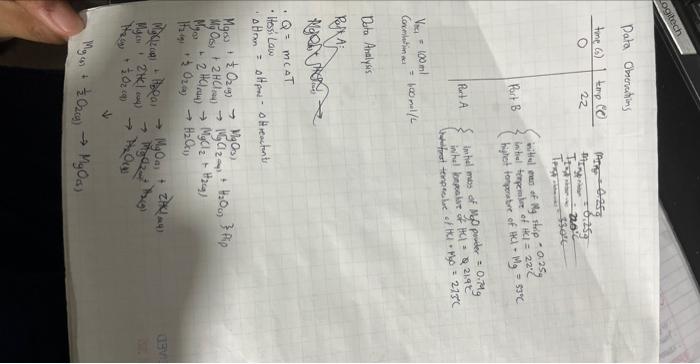 ogitech
Data Observations
time (s) | temp (°C)
0 | 22
Part B { initial mass of Mg strip = 0.25g
initial temperature of HCl = 22°C
highest temperature of HCl + Mg = 53°C
Part A { initial mass of MgO powder = 0.74g
initial temperature of HCl = 21.9°C
temperature of HCl + MgO = 27.5°C
VHCl = 100ml
Concentration HCl = 1.00 mol/L
Data Analysis
Part A:
· Q = mcΔT
· Hess' Law
· ΔHrxn = ΔHprod - ΔHreactants
Mg(s) + ½ O2(g) → MgO(s)
MgO(s) + 2HCl(aq) → MgCl2(aq) + H2O(l) } flip
Mg(s) + 2 HCl(aq) → MgCl2 + H2(g)
H2(g) + ½ O2(g) → H2O(l)
MgCl2(aq) + H2O(l) → MgO(s) + 2HCl(aq)
Mg(s) + 2HCl(aq) → MgCl2(aq) + H2(g)
H2(g) + ½ O2(g) → H2O(l)
↓
Mg(s) + ½ O2(g) → MgO(s)